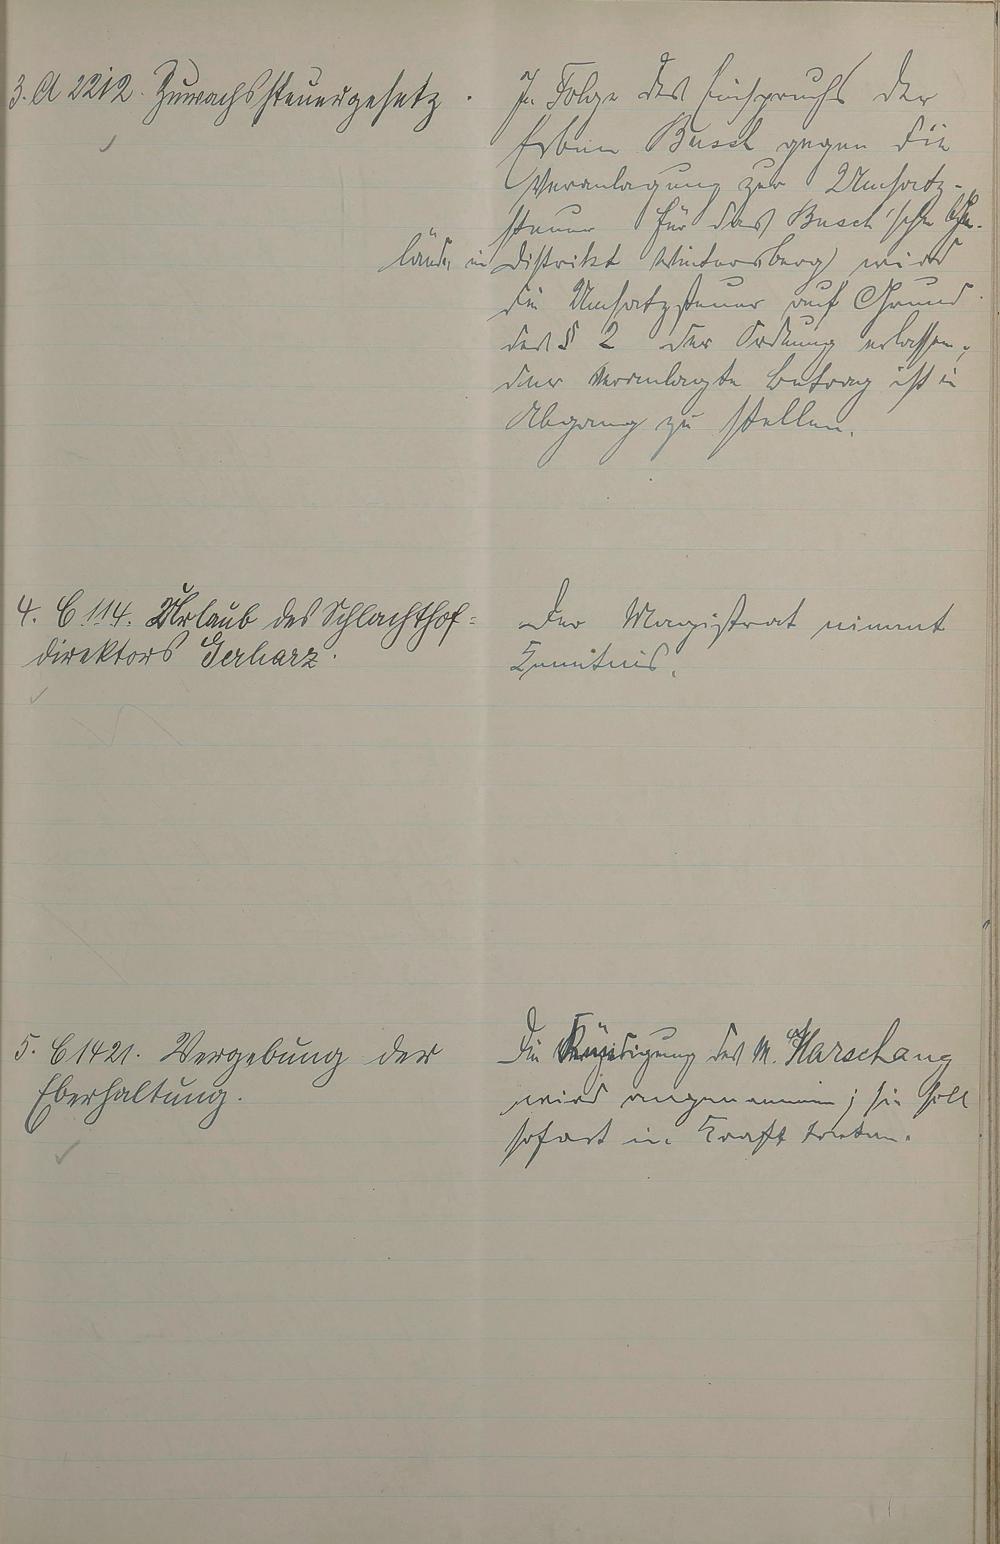 3. A 2212. Zuwachssteuergesetz.
In Folge des Einspruchs der
Erben Busch gegen die
Veranlagung zur Umsatz-
steuer für das Busch'sche Ge-
lände in Distrikt Wintersberg wird
die Umsatzsteuer auf Grund
des § 2 der Ordnung erlassen;
der veranlagte Betrag ist in
Abgang zu stellen.
4. C 114. Urlaub des Schlachthof-
direktors Gerharz.
Der Magistrat nimmt
Kenntnis.
5. C 1421. Vergebung der
Eberhaltung.
Die Kündigung des M. Harschang
wird angenommen; sie soll
sofort in Kraft treten.